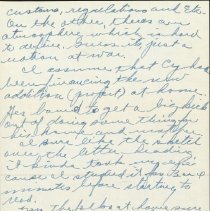 customs, regulations and Etc.
On the other, there's an
atmosphere which is hard
to define. Guess its just a
nation at war.
I assume that Cy has
been financing the new
addition (project) at home.
He's bound to get a big kick
out of doing something
his home and
I sure like the sketch
over the letter heading
I kind a took my
cause I studied it for
minutes before starting to
read.
the folks at home sure